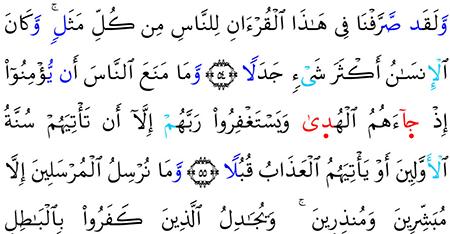 وَلَقَد صَّرَّفْنَا فِى هَٰذَا ٱلْقُرْءَانِ لِلنَّاسِ مِن كُلِّ مَثَلٍۚ وَّكَانَ
ٱلْإِنسَٰنُ أَكْثَرَ شَىْءٍ جَدَلًا ۝٥٤ وَّمَا مَنَعَ ٱلنَّاسَ أَن يُّؤْمِنُوٓا۟
إِذْ جَآءَهُمُ ٱلْهُدَىٰ وَيَسْتَغْفِرُوا۟ رَبَّهُمْ إِلَّآ أَن تَأْتِيَهُمْ سُنَّةُ
ٱلْأَوَّلِينَ أَوْ يَأْتِيَهُمُ ٱلْعَذَابُ قُبُلًا ۝٥٥ وَّمَا نُرْسِلُ ٱلْمُرْسَلِينَ إِلَّا
مُبَشِّرِينَ وَمُنذِرِينَ ۚ وَيُجَٰدِلُ ٱلَّذِينَ كَفَرُوا۟ بِٱلْبَٰطِلِ